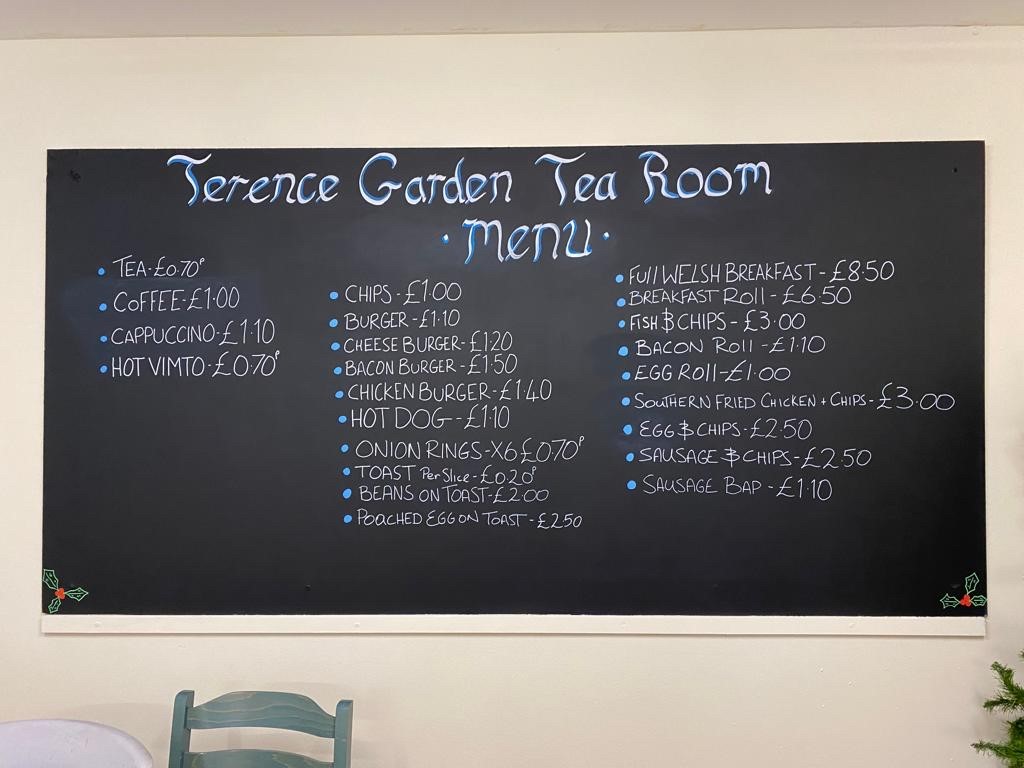 Terence Garden Tea Room
· Menu ·
• TEA - £0.70P
• COFFEE - £1.00
• CAPPUCCINO - £1.10
• HOT VIMTO - £0.70P
• CHIPS - £1.00
• BURGER - £1.10
• CHEESE BURGER - £1.20
• BACON BURGER - £1.50
• CHICKEN BURGER - £1.40
• HOT DOG - £1.10
• ONION RINGS - X6 £0.70P
• TOAST Per Slice - £0.20P
• BEANS ON TOAST - £2.00
• POACHED EGG ON TOAST - £2.50
• FUll WELSH BREAKFAST - £8.50
• BREAKFAST ROLL - £6.50
• FISH & CHIPS - £3.00
• BACON ROLL - £1.10
• EGG ROLL - £1.00
• SOUTHERN FRIED CHICKEN + CHIPS - £3.00
• EGG & CHIPS - £2.50
• SAUSAGE & CHIPS - £2.50
• SAUSAGE BAP - £1.10